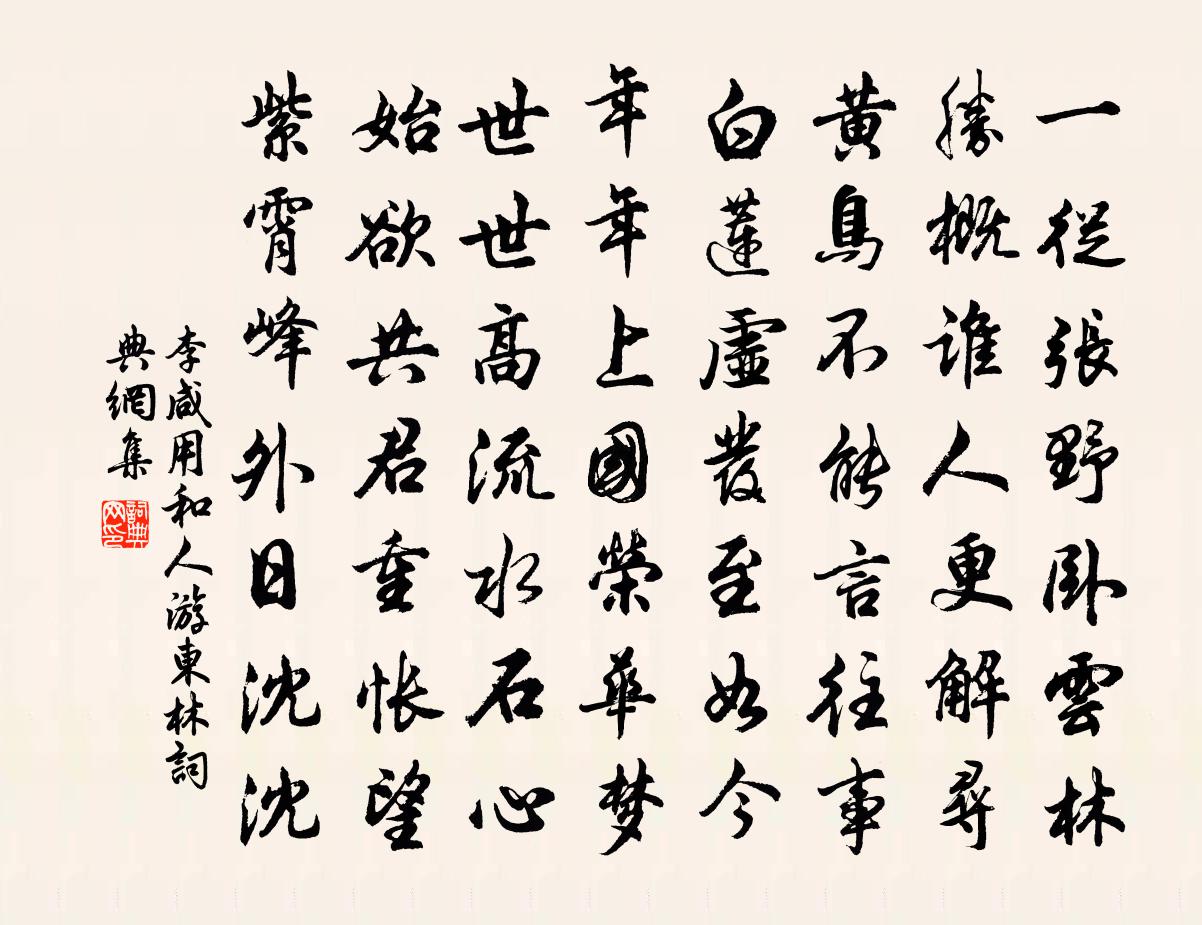 一從張野臥雲林
勝概誰人更解尋
黃鳥不能言往事
白蓮虛發至如今
年年上國榮華夢
世世高流水石心
始欲共君重悵望
紫霄峰外日沈沈
李咸用和人游東林詞
典網集
詞典网印